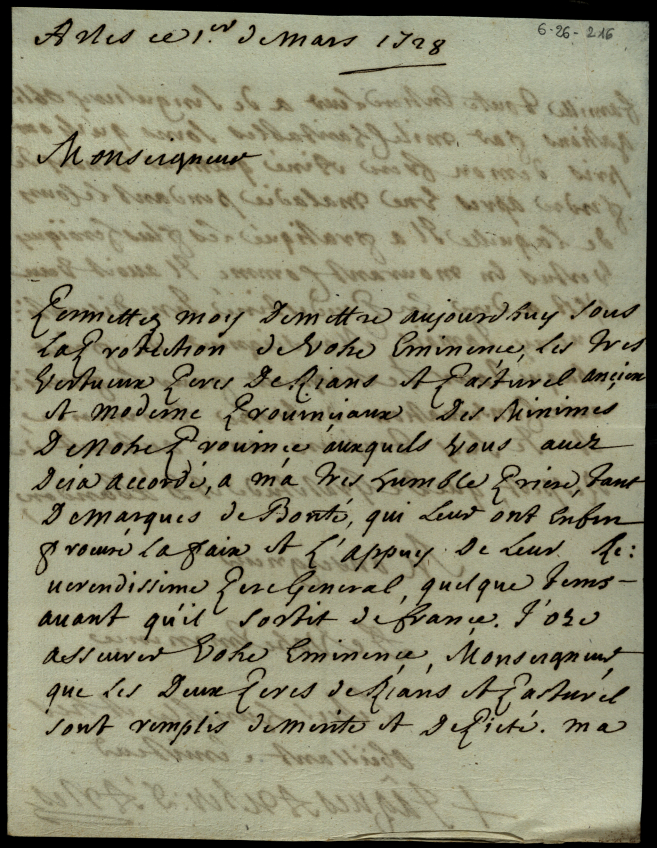 6-26-216
Arles ce 1.er de Mars 1728
Monseigneur
Permettez moy de mettre aujourdhuy sous
La Protection de Votre Eminence, Les tres
vertueux Peres De Rians et Pasturel ancien
et moderne Prouinciaux Des Minimes
De Notre Prouince auxquels vous auez
Desia accordé, a ma tres humble Priere, tant
De marques de Bonté, qui Leur ont Enfin
procuré La paix et L'appuy De Leur Re:
uerendissime Pere General, quelque tems
auant qu'il sortit de france. J'oze
asseurer Votre Eminence, Monseigneur,
que Les Deux Peres de Rians et Pasturel
sont remplis de merite et De Pieté. ma